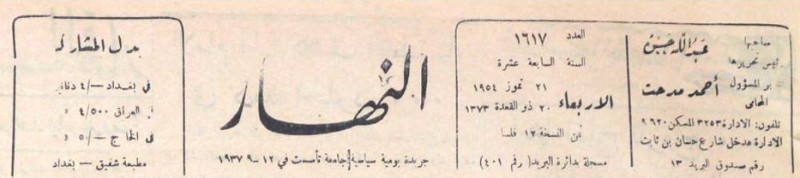 صاحبها
عبدالله حسين
رئيس تحريرها
المسؤول
أحمد مدحت
المحامي
تلفون: الادارة ٣٢٥٣ المسكن ٩٦٢٠
الادارة مدخل شارع حسان بن ثابت
رقم صندوق البريد ١٣
العدد ١٦١٧
السنة السابعة عشرة
الاربعاء
٢١ تموز ١٩٥٤
٢٠ ذو القعدة ١٣٧٣
ثمن النسخة ١٢ فلسا
مسجلة بدائرة البريد (رقم ٤٠١)
النهار
جريدة يومية سياسية جامعة تأسست في ١٢ـ٩ـ١٩٣٧
بدل المشاركة
في بغداد ـ/٤ دنانير
في العراق ٤/٥٠٠ د
في الخارج ـ/٥ د
مطبعة شفيق ـ بغداد